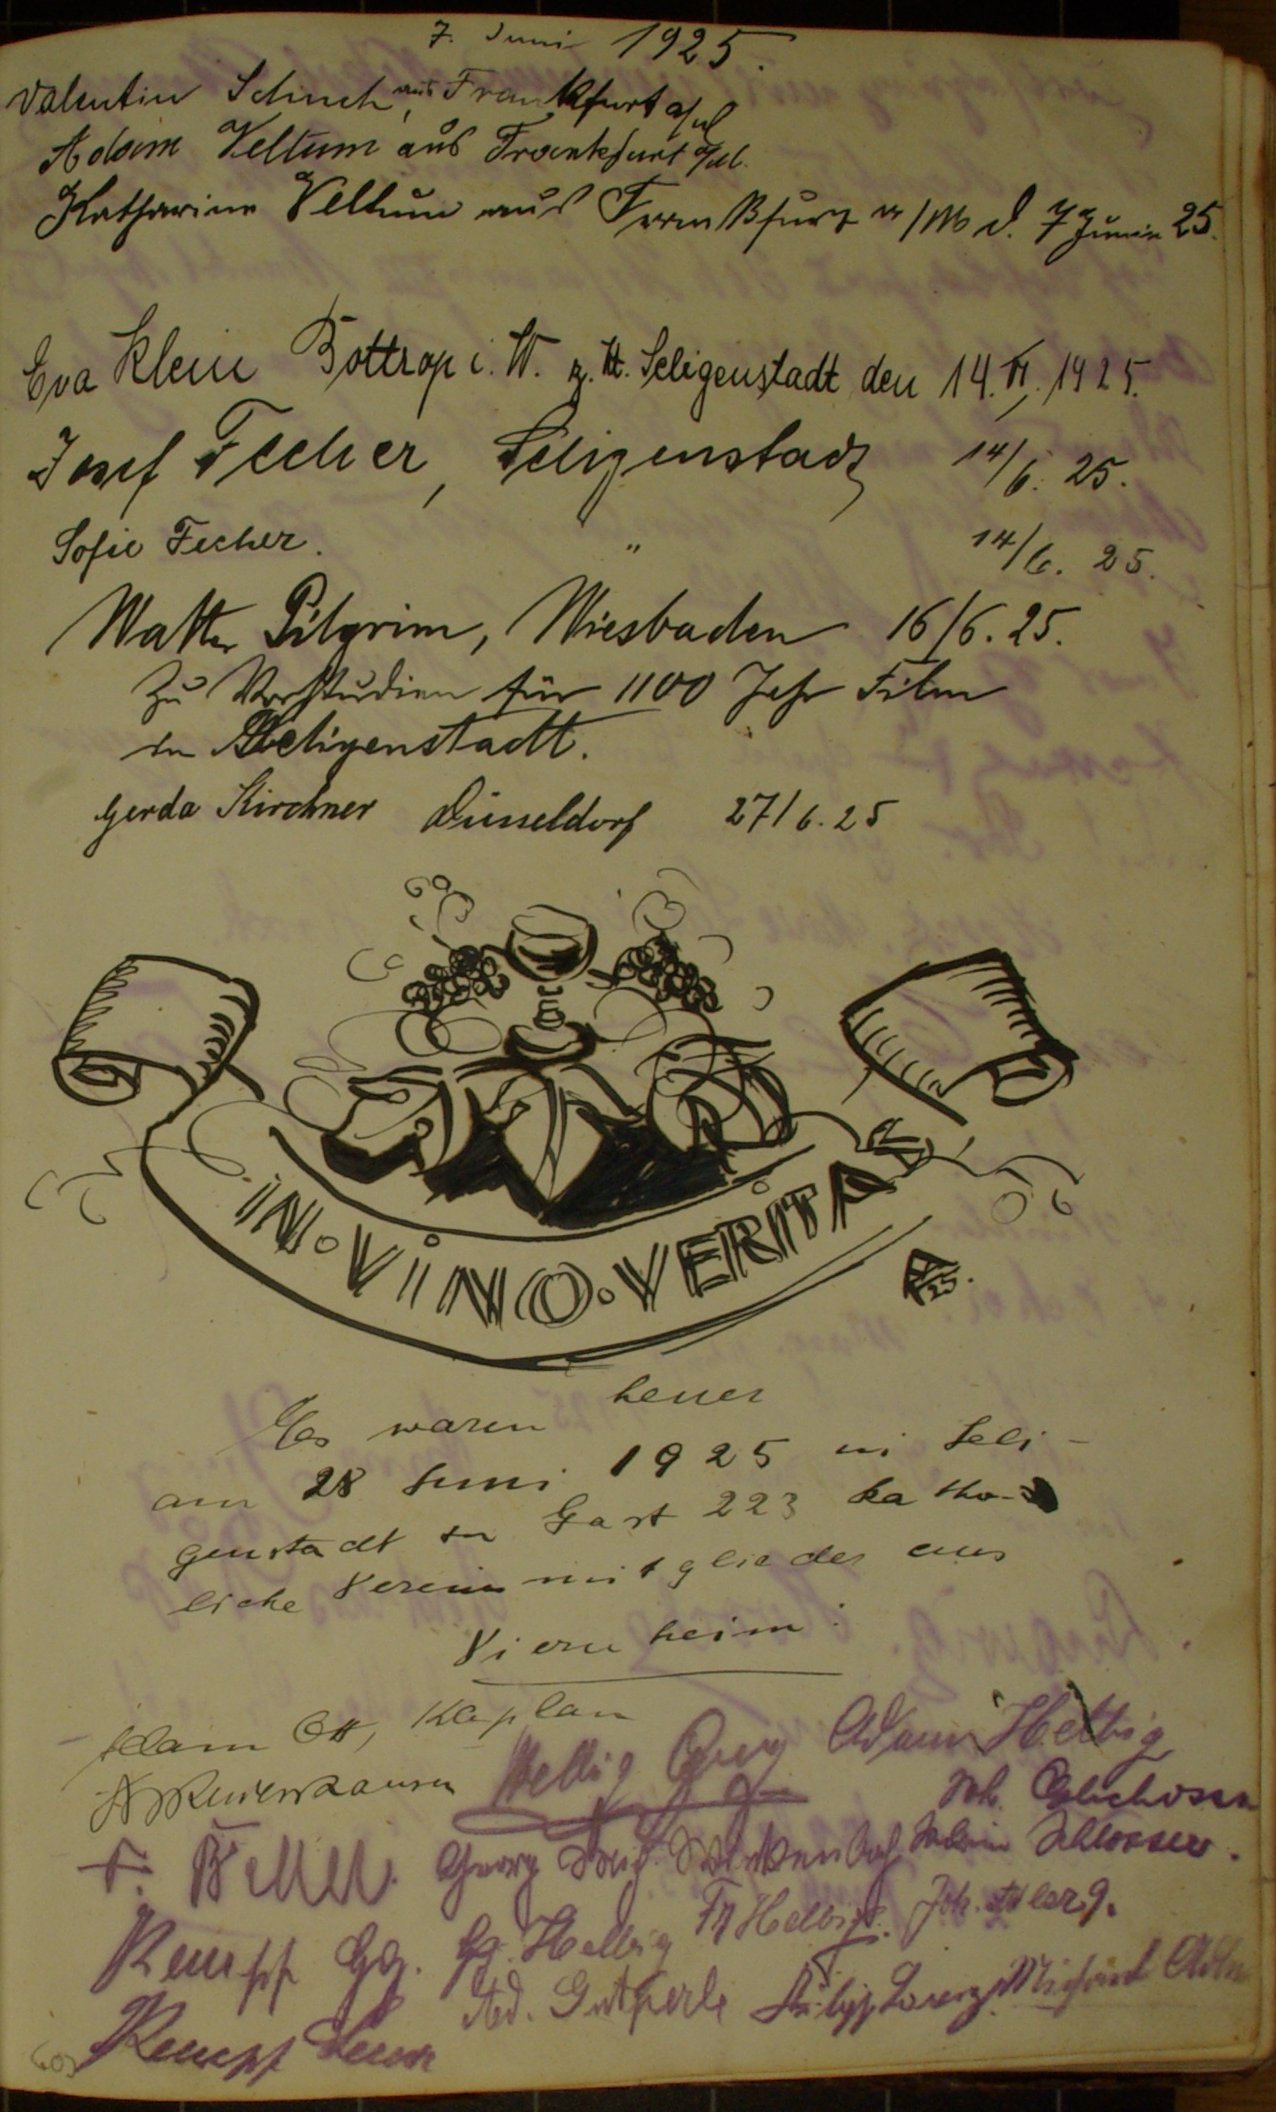 7. Juni 1925.
Valentin Schuch, aus Frankfurt a/M
Adam Veltum aus Frankfurt a/M.
Katharina Veltum aus Frankfurt a/M d. 7 Juni 25.
Eva Klein Bottrop i. W. z. Zt. Seligenstadt, den 14. VI. 1925.
Josef Fecher, Seligenstadt 14/6. 25.
Sofie Fecher. " 14/6. 25.
Walter Pilgrim, Wiesbaden 16/6. 25.
Zu Vorstudien für 1100 Jahr Film
in Seligenstadt.
Gerda Kirchner Düsseldorf 27/6. 25
IN·VINO·VERITAS
25.
Es waren heuer
am 28 Juni 1925 in Seli-
genstadt zu Gast 223 katho-
lische Vereinsmitglieder aus
Viernheim:
Adam Ott, Kaplan
Helbig Georg Adam Helbig
Georg Winkenbach Schlosser.
Kempf Gg. Gg. Helbig Fr Helbig. Joh. Adler 9.
Ad. Gutperle Philipp Lorenz Michael
Kempf